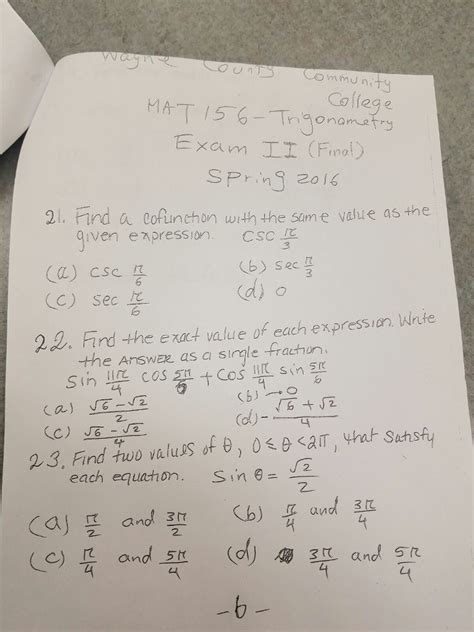 Wayne County Community
College
MAT 156 - Trigonometry
Exam II (Final)
Spring 2016
21. Find a cofunction with the same value as the
given expression. csc π/3
(a) csc π/6 (b) sec π/3
(c) sec π/6 (d) 0
22. Find the exact value of each expression. Write
the ANSWER as a single fraction.
sin 11π/4 cos 5π/6 + cos 11π/4 sin 5π/6
(a) √6 - √2/2 (b) - 0
(c) √6 - √2/4 (d) - √6 + √2/4
23. Find two values of θ, 0 ≤ θ < 2π, that satisfy
each equation. sin θ = √2/2
(a) π/2 and 3π/2 (b) π/4 and 3π/4
(c) π/4 and 5π/4 (d) 3π/4 and 5π/4
-6-